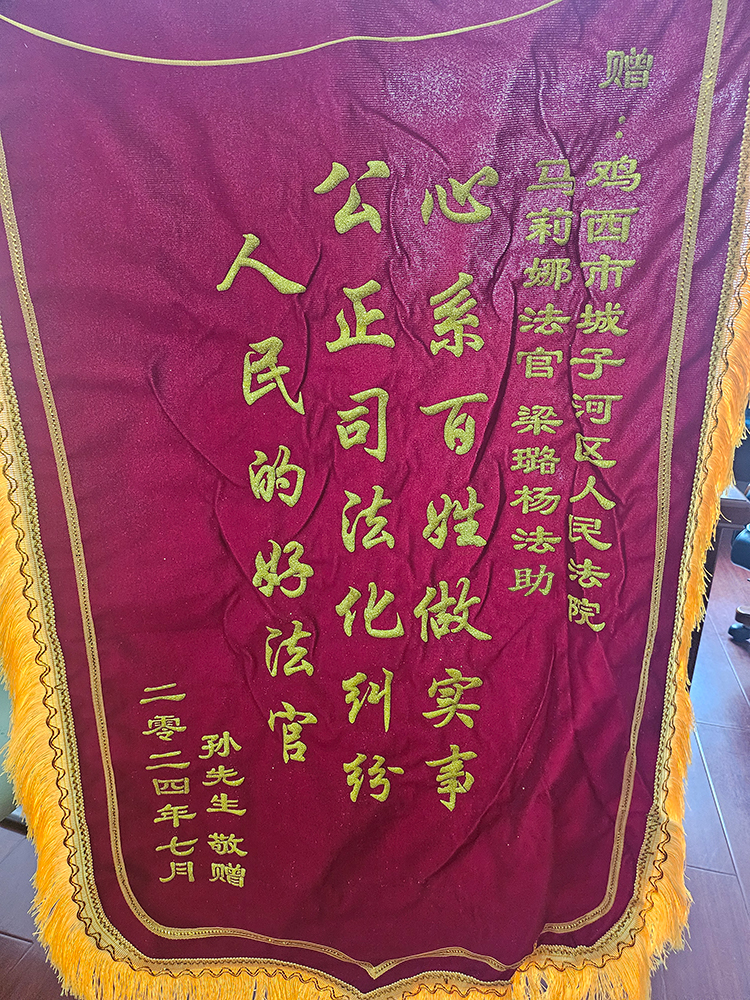 赠：鸡西市城子河区人民法院
马莉娜法官 梁璐杨法助
心系百姓做实事
公正司法化纠纷
人民的好法官
孙先生 敬赠
二零二四年七月